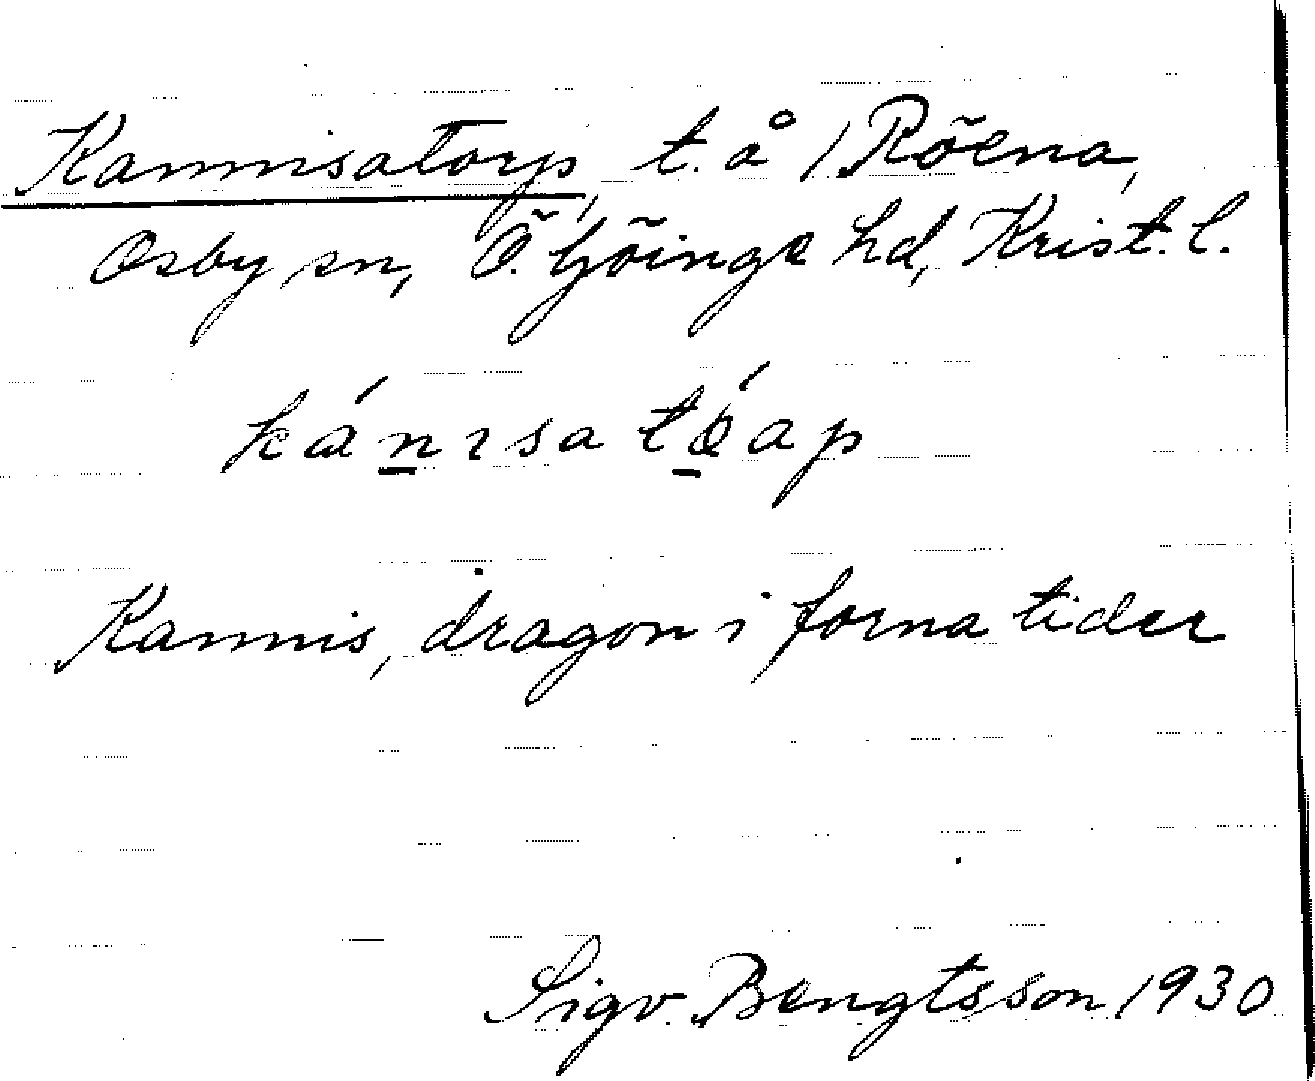 Kannisatorp, t. å 1 Röena,
Osby sn, Ö. Göinge hd, Krist. l.
kánɪsatǿap
Kannis, dragon i forna tider
Sigv. Bengtsson 1930